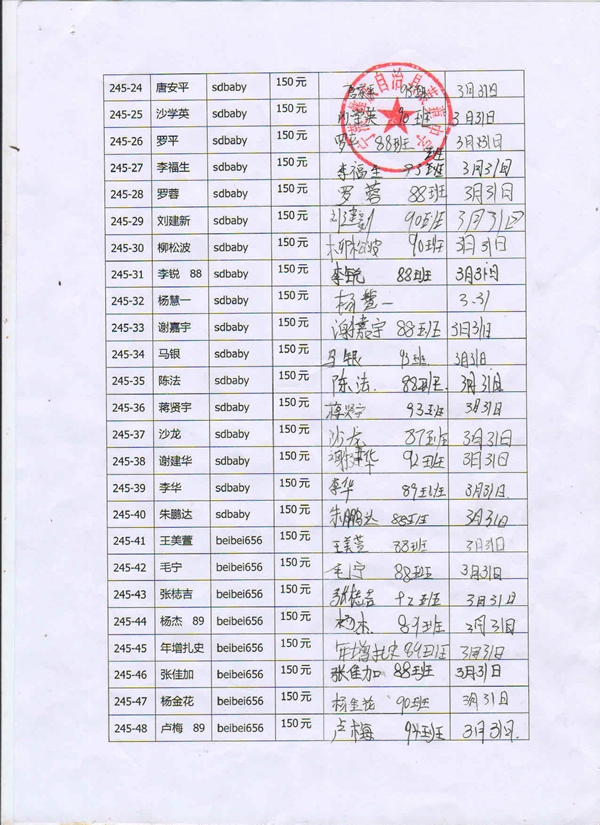 245-24 唐安平 sdbaby 150元 93班 3月31日
245-25 沙学英 sdbaby 150元 沙学英 90班 3月31日
245-26 罗平 sdbaby 150元 罗平 88班 3月31日
245-27 李福生 sdbaby 150元 李福生 93班 3月31日
245-28 罗蓉 sdbaby 150元 罗蓉 88班 3月31日
245-29 刘建新 sdbaby 150元 刘建新 90班 3月31日
245-30 柳松波 sdbaby 150元 柳松波 90班 3月31日
245-31 李锐 88 sdbaby 150元 李锐 88班 3月31日
245-32 杨慧一 sdbaby 150元 杨慧一 3.31
245-33 谢嘉宇 sdbaby 150元 谢嘉宇 88班 3月31日
245-34 马银 sdbaby 150元 马银 93班. 3月31日
245-35 陈法 sdbaby 150元 陈法. 88班. 3月31日
245-36 蒋贤宇 sdbaby 150元 蒋贤宇 93班 3月31日
245-37 沙龙 sdbaby 150元 沙龙 87班 3月31日
245-38 谢建华 sdbaby 150元 谢建华 92班 3月31日
245-39 李华 sdbaby 150元 李华 89班 3月31日
245-40 朱鹏达 sdbaby 150元 朱鹏达 88班 3月31日
245-41 王美萱 beibei656 150元 王美萱 88班 3月31日
245-42 毛宁 beibei656 150元 毛宁 88班 3月31日
245-43 张梽吉 beibei656 150元 张梽吉 92班 3月31日
245-44 杨杰 89 beibei656 150元 杨杰 89班 3月31日
245-45 年增扎史 beibei656 150元 年增扎史 89班 3月31日
245-46 张佳加 beibei656 150元 张佳加 88班 3月31日
245-47 杨金花 beibei656 150元 杨金花 90班 3月31日
245-48 卢梅 89 beibei656 150元 卢梅 94班 3月31日.